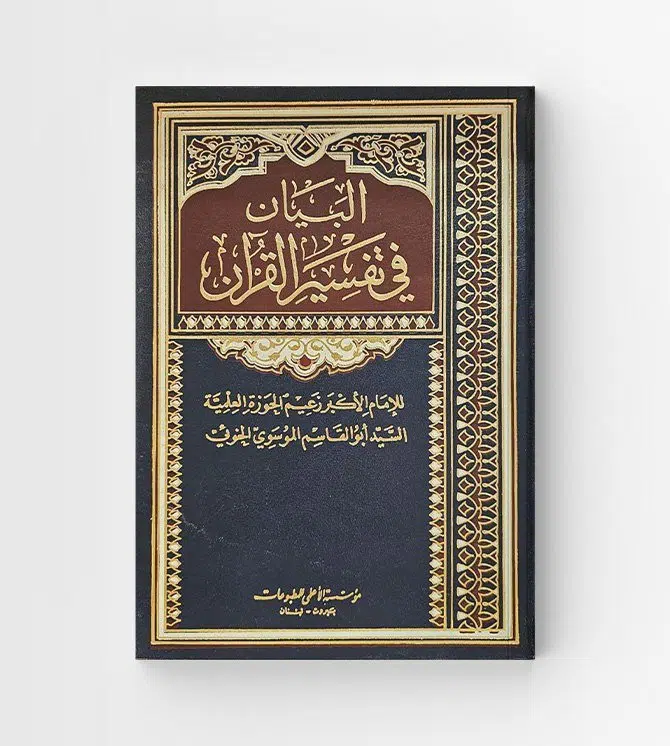 البَيَان
في تَفسِير القُرآن
للإمَام الأكبَر زَعيم الحَوزة العِلميَّة
السَيّد أبوالقَاسِم الموُسَوي الخوئي
مؤسسة الأعلمى للمطبوعات
بيروت - لبنان